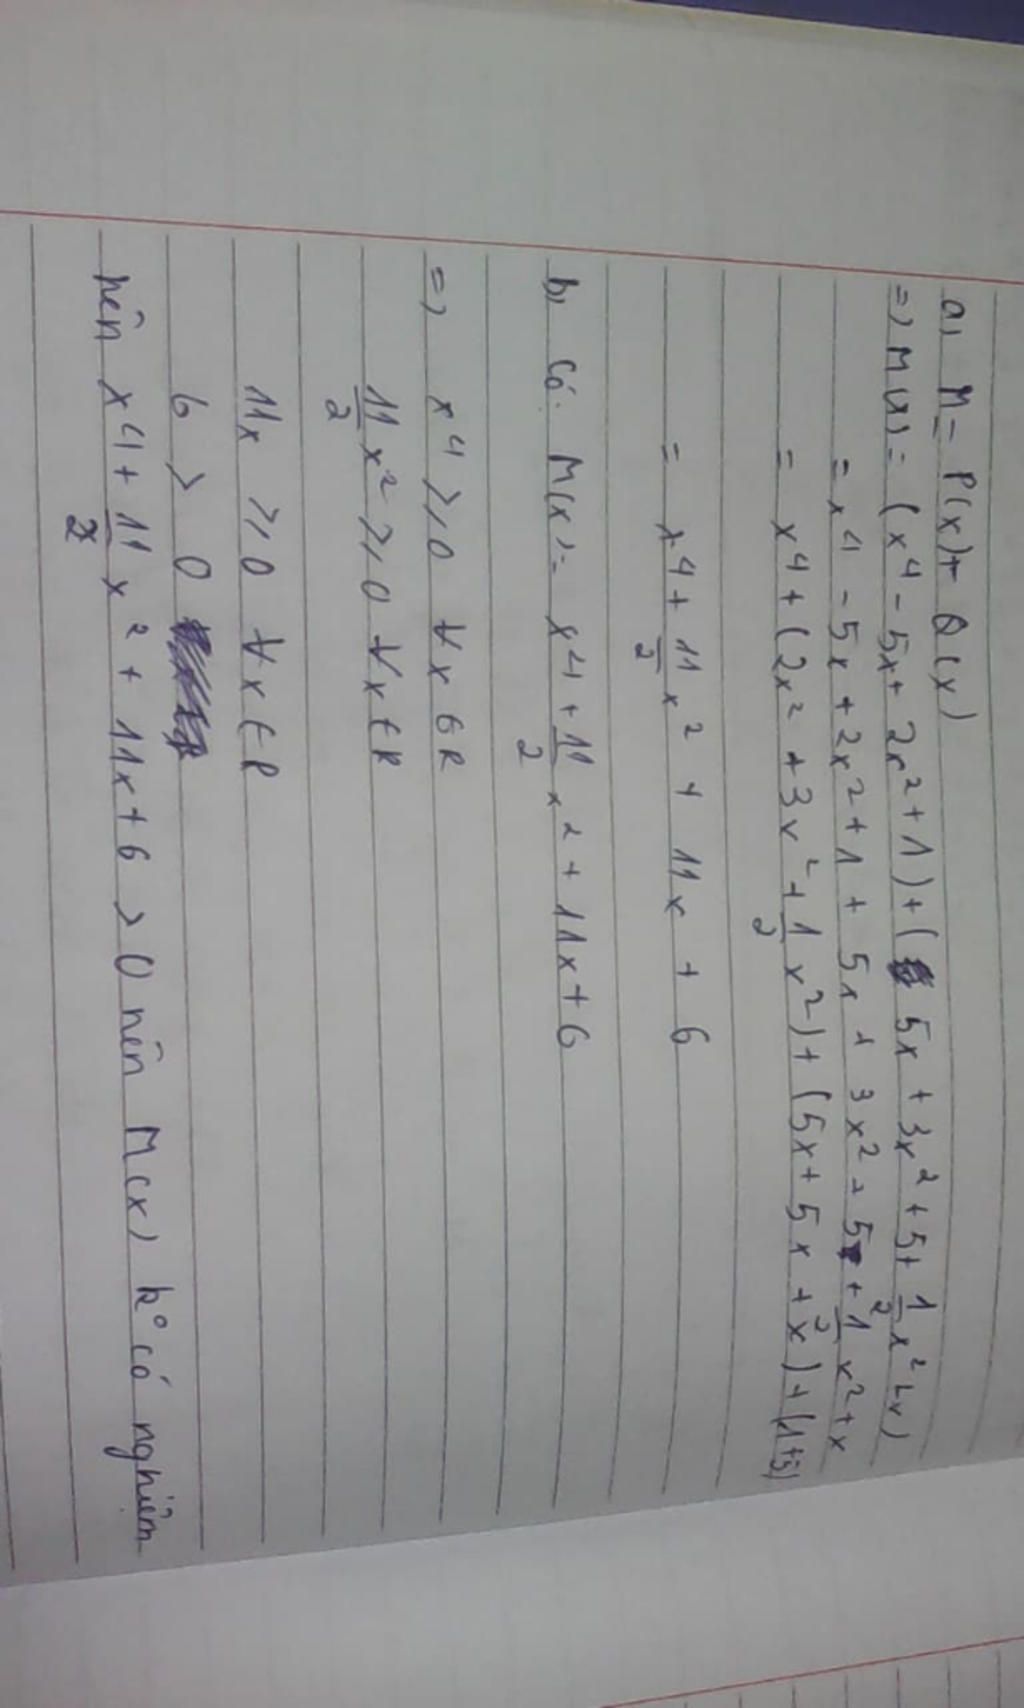 a, M = P(x) + Q(x)
=) M(x) = (x⁴ - 5x + 2x² + 1) + (5x + 3x² + 5 + 1/2 x² + x)
= x⁴ - 5x + 2x² + 1 + 5x + 3x² + 5 + 1/2 x² + x
= x⁴ + (2x² + 3x² + 1/2 x²) + (5x + 5x + x) + (1+5)
= x⁴ + 11/2 x² + 11x + 6
b, Có: M(x) = x⁴ + 11/2 x² + 11x + 6
=) x⁴ ≥ 0 ∀x ∈ R
11/2 x² ≥ 0 ∀x ∈ R
11x ≥ 0 ∀x ∈ R
6 > 0
nên x⁴ + 11/2 x² + 11x + 6 > 0 nên M(x) k° có nghiệm